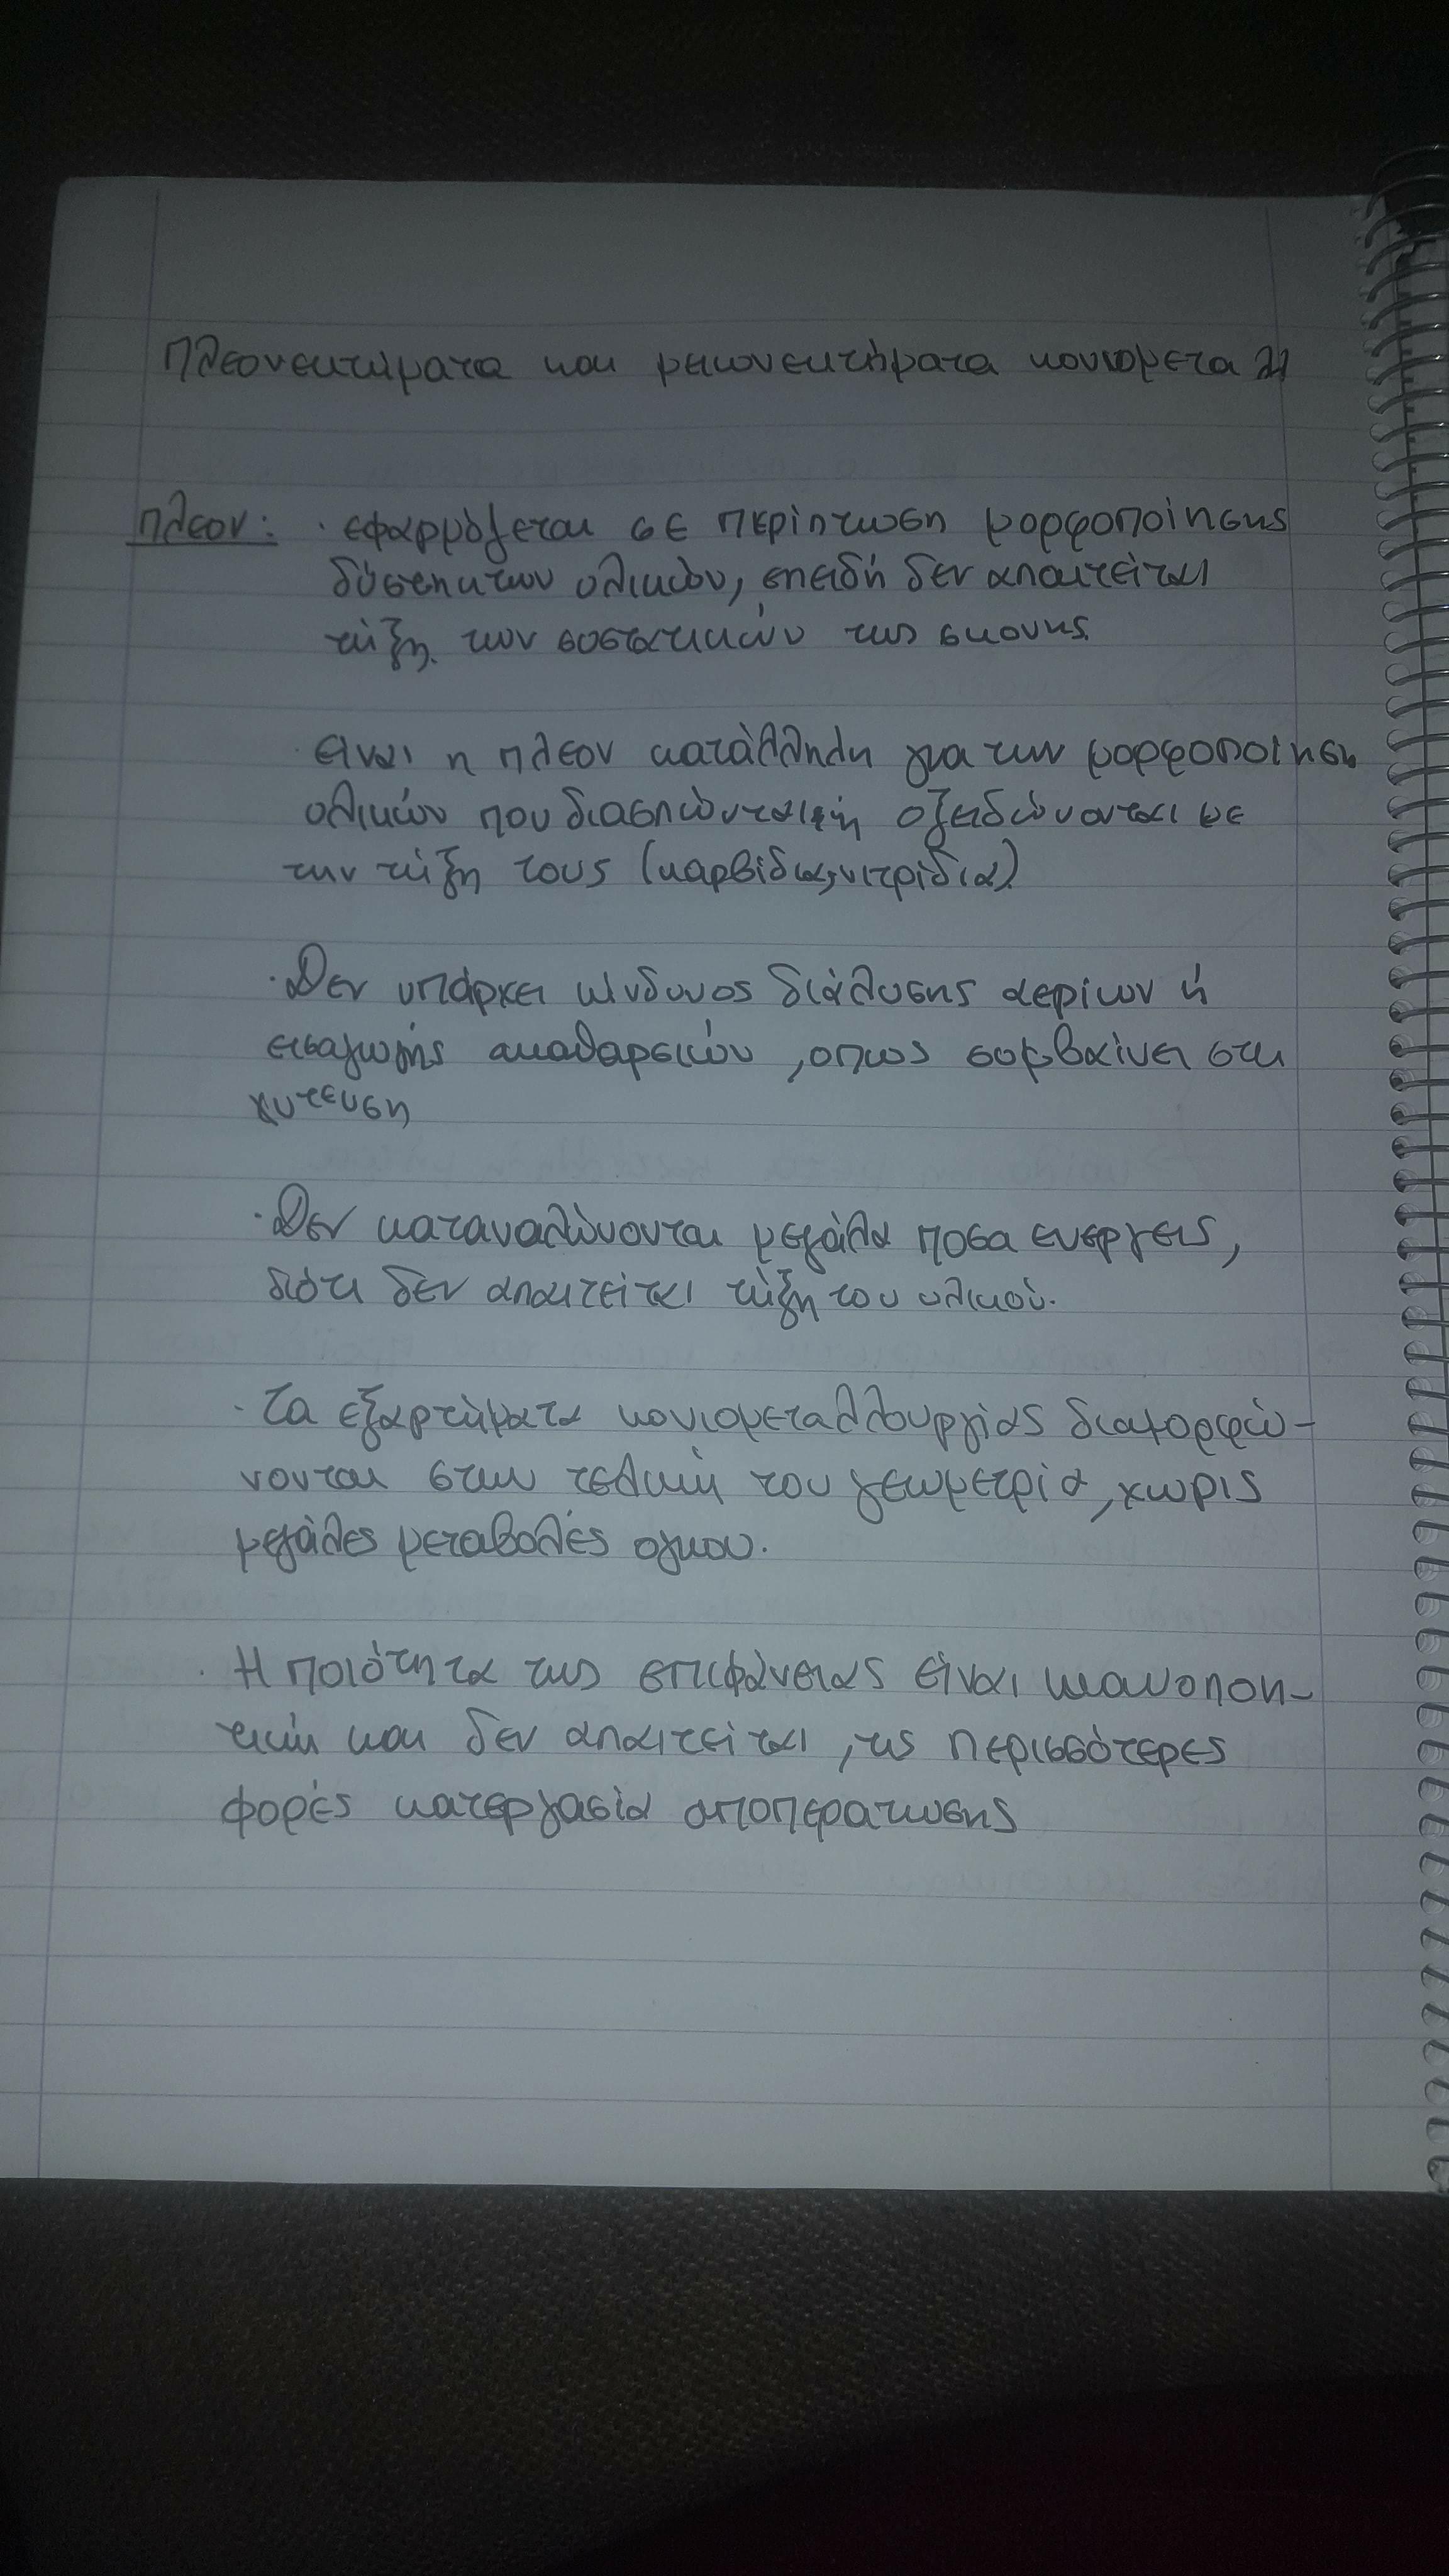 Πλεονεκτήματα και μειονεκτήματα κονιομεταλλ
πλεον: · εφαρμόζεται σε περίπτωση μορφοποίησης
δύστηκτων υλικών, επειδή δεν απαιτείται
τήξη των συστατικών της σκονης.
· είναι η πλεον κατάλληλη για την μορφοποίηση
υλικών που διασπώνται ή οξειδώνονται με
την τήξη τους (καρβίδια, νιτρίδια).
· Δεν υπάρχει κίνδυνος διάλυσης αερίων ή
εισαγωγής ακαθαρσιών, οπως συμβαίνει στη
χυτευση
· Δεν καταναλώνονται μεγάλα ποσα ενεργεις,
διότι δεν απαιτείται τήξη του υλικού.
· Τα εξαρτήματα κονιομεταλλουργίας διαμορφώ-
νονται στην τελική του γεωμετρία, χωρις
μεγάλες μεταβολές ογκου.
· Η ποιότητα της επιφάνειας είναι ικανοποιη-
τική και δεν απαιτείται, τις περισσότερες
φορές κατεργασία αποπερατωσης